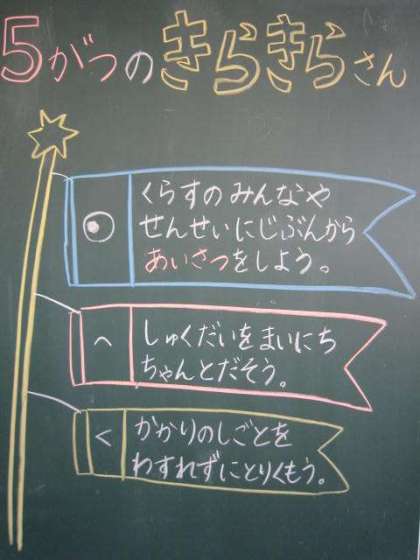 5がつのきらきらさん
くらすのみんなや
せんせいにじぶんから
あいさつをしよう。
へ
しゅくだいをまいにち
ちゃんとだそう。
く
かかりのしごとを
わすれずにとりくもう。